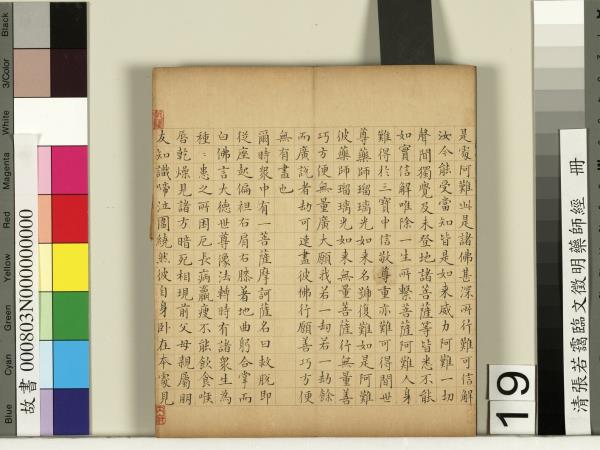 是處阿難此是諸佛甚深所行難可信解
汝今能受當知皆是如來威力阿難一切
聲聞獨覺及未登地諸菩薩等皆悉不能
如實信解唯除一生所繫菩薩阿難人身
難得於三寶中信敬尊重亦難可得聞世
尊藥師瑠璃光如來名號復難如是阿難
彼藥師瑠璃光如來無量菩薩行無量善
巧方便無量廣大願我若一劫若一劫餘
而廣說者劫可速盡彼佛行願善巧方便
無有盡也
爾時眾中有一菩薩摩訶薩名曰救脫即
從座起偏袒右肩右膝著地曲躬合掌而
白佛言大德世尊像法轉時有諸眾生為
種〻患之所困厄長病羸瘦不能飲食喉
脣乾燥見諸方暗死相現前父母親屬朋
友知識啼泣圍繞然彼自身臥在本處見
清張若靄臨文徵明藥師經 冊
19
故書 000803N000000000
Black
3/Color
White
Magenta
Red
Yellow
Green
Cyan
Blue